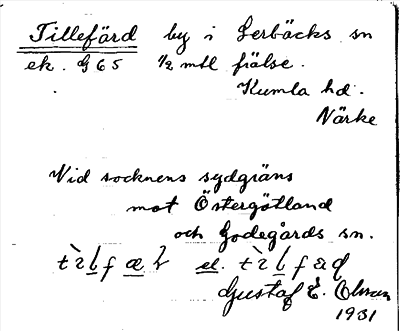 Tillefärd by i Lerbäcks sn
ek. G65 1/2 mtl frälse.
Kumla hd.
Närke
Vid socknens sydgräns
mot Östergötland
och Godegårds sn.
el.
Gustaf E.
1931